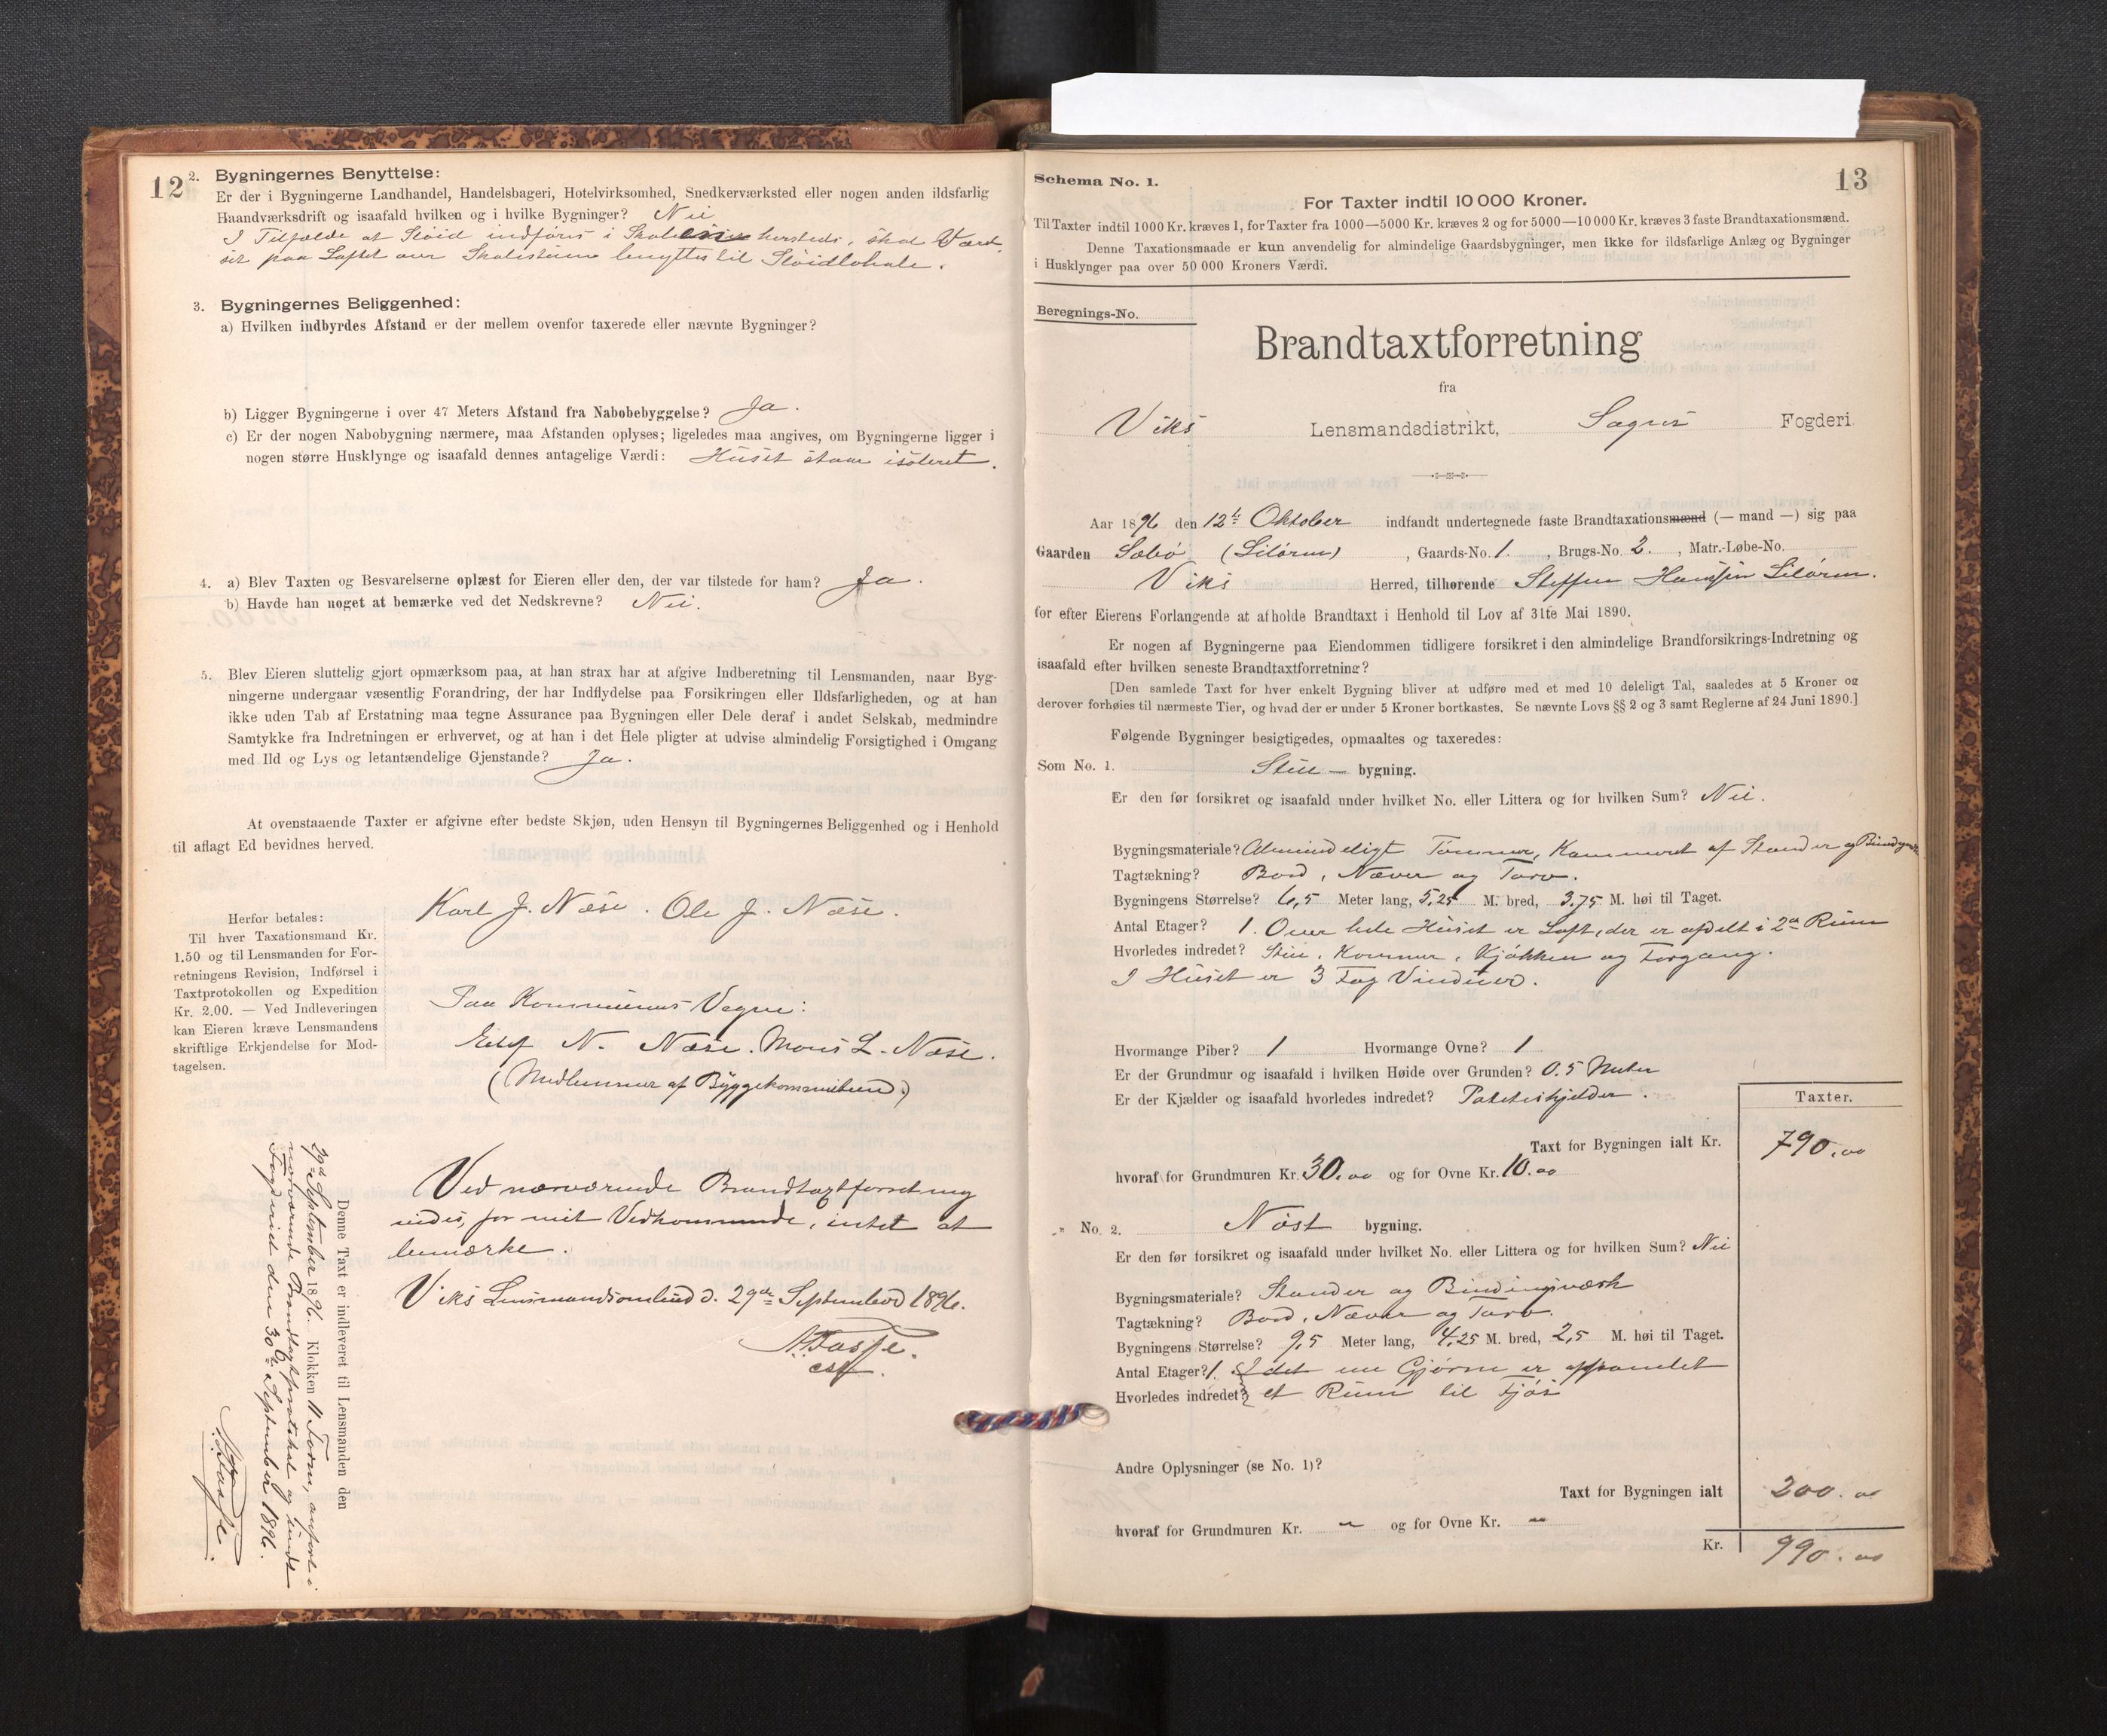 12
2. Bygningernes Benyttelse:
Er der i Bygningerne Landhandel, Handelsbageri, Hotelvirksomhed, Snedkerværksted eller nogen anden ildsfarlig
Haandværksdrift og isaafald hvilken og i hvilke Bygninger? Nei
I Tilfælde at Slöid indføres i hersteds, skal
paa Loftet over Skolestuen benyttes til Slöidlokale.
3. Bygningernes Beliggenhed:
a) Hvilken indbyrdes Afstand er der mellem ovenfor taxerede eller nævnte Bygninger?
b) Ligger Bygningerne i over 47 Meters Afstand fra Nabobebyggelse? Ja.
c) Er der nogen Nabobygning nærmere, maa Afstanden oplyses; ligeledes maa angives, om Bygningerne ligger i
nogen større Husklynge og isaafald dennes antagelige Værdi: Huset staar isoleret.
4. a) Blev Taxten og Besvarelserne oplæst for Eieren eller den, der var tilstede for ham? Ja.
b) Havde han noget at bemærke ved det Nedskrevne? Nei.
5. Blev Eieren sluttelig gjort opmærksom paa, at han strax har at afgive Indberetning til Lensmanden, naar Byg-
ningerne undergaar væsentlig Forandring, der har Indflydelse paa Forsikringen eller Ildsfarligheden, og at han
ikke uden Tab af Erstatning maa tegne Assurance paa Bygningen eller Dele deraf i andet Selskab, medmindre
Samtykke fra Indretningen er erhvervet, og at han i det Hele pligter at udvise almindelig Forsigtighed i Omgang
med Ild og Lys og letantændelige Gjenstande? Ja.
At ovenstaaende Taxter er afgivne efter bedste Skjøn, uden Hensyn til Bygningernes Beliggenhed og i Henhold
til aflagt Ed bevidnes herved.
Karl J. Næse. Ole J. Næse.
Herfor betales:
Til hver Taxationsmand Kr.
1.50 og til Lensmanden for For-
retningens Revision, Indførsel i
Taxtprotokollen og Expedition
Kr. 2.00. — Ved Indleveringen
kan Eieren kræve Lensmandens
skriftlige Erkjendelse for Mod-
tagelsen.
Paa Kommunens Vegne:
N. Næse. Mons L. Næse.
(Medlemmer af Byggekommiteen.)
Ved nærværende Brandtaxtforretning
vides, for mit Vedkommende, intet at
bemærke.
Viks Lensmandsombud d. 29de September 1896.
Denne Taxt er indleveret til Lensmanden den
29de September 1896. Klokken 11 Form, anført i
nærværende Brandtaxtprotokol og sendt
Fogderiet den 30te September 1896.
13
Schema No. 1.
For Taxter indtil 10 000 Kroner.
Til Taxter indtil 1000 Kr. kræves 1, for Taxter fra 1000—5000 Kr. kræves 2 og for 5000—10 000 Kr. kræves 3 faste Brandtaxationsmænd.
Denne Taxationsmaade er kun anvendelig for almindelige Gaardsbygninger, men ikke for ildsfarlige Anlæg og Bygninger
i Husklynger paa over 50 000 Kroners Værdi.
Beregnings-No.
Brandtaxtforretning
fra
Viks Lensmandsdistrikt, Sogns Fogderi
Aar 1896 den 12te Oktober indfandt undertegnede faste Brandtaxationsmænd (— mand —) sig paa
Gaarden Sæbø (Liløren), Gaards-No. 1., Brugs-No. 2., Matr.-Løbe-No.
Viks Herred, tilhørende Steffen Hansen Liløren.
for efter Eierens Forlangende at afholde Brandtaxt i Henhold til Lov af 31te Mai 1890.
Er nogen af Bygningerne paa Eiendommen tidligere forsikret i den almindelige Brandforsikrings-Indretning og
isaafald efter hvilken seneste Brandtaxtforretning?
[Den samlede Taxt for hver enkelt Bygning bliver at udføre med et med 10 deleligt Tal, saaledes at 5 Kroner og
derover forhøies til nærmeste Tier, og hvad der er under 5 Kroner bortkastes. Se nævnte Lovs §§ 2 og 3 samt Reglerne af 24 Juni 1890.]
Følgende Bygninger besigtigedes, opmaaltes og taxeredes:
Som No. 1. Stue — bygning.
Er den før forsikret og isaafald under hvilket No. eller Littera og for hvilken Sum? Nei.
Bygningsmateriale? Almindeligt Tømmer, Kammeret af Stender og
Tagtækning? Bord, Næver og Torv.
Bygningens Størrelse? 6,5 Meter lang, 5,25 M. bred, 3,75 M. høi til Taget.
Antal Etager? 1. Over hele Huset er Loft, der er afdelt i 2de Rum
Hvorledes indredet? Stue, Kammer, Kjøkken og Forgang.
I Huset er 3 Fag Vinduer.
Hvormange Piber? 1 Hvormange Ovne? 1
Er der Grundmur og isaafald i hvilken Høide over Grunden? 0.5 Meter
Er der Kjælder og isaafald hvorledes indredet? Poteteskjelder.
Taxter.
Taxt for Bygningen ialt Kr. 790.00
hvoraf for Grundmuren Kr. 30.00 og for Ovne Kr. 10.00
" No. 2. Nøst bygning.
Er den før forsikret og isaafald under hvilket No. eller Littera og for hvilken Sum? Nei
Bygningsmateriale? Stender og Bindingsværk
Tagtækning? Bord, Næver og Torv.
Bygningens Størrelse? 9,5 Meter lang, 4,25 M. bred, 2,5 M. høi til Taget.
Antal Etager? 1. I det ene Hjørne er afpanelet
Hvorledes indredet? et Rum til Fjøs
Andre Oplysninger (se No. 1)?
Taxt for Bygningen ialt 200.00
hvoraf for Grundmuren Kr. " og for Ovne Kr. "
Kr. 990.00